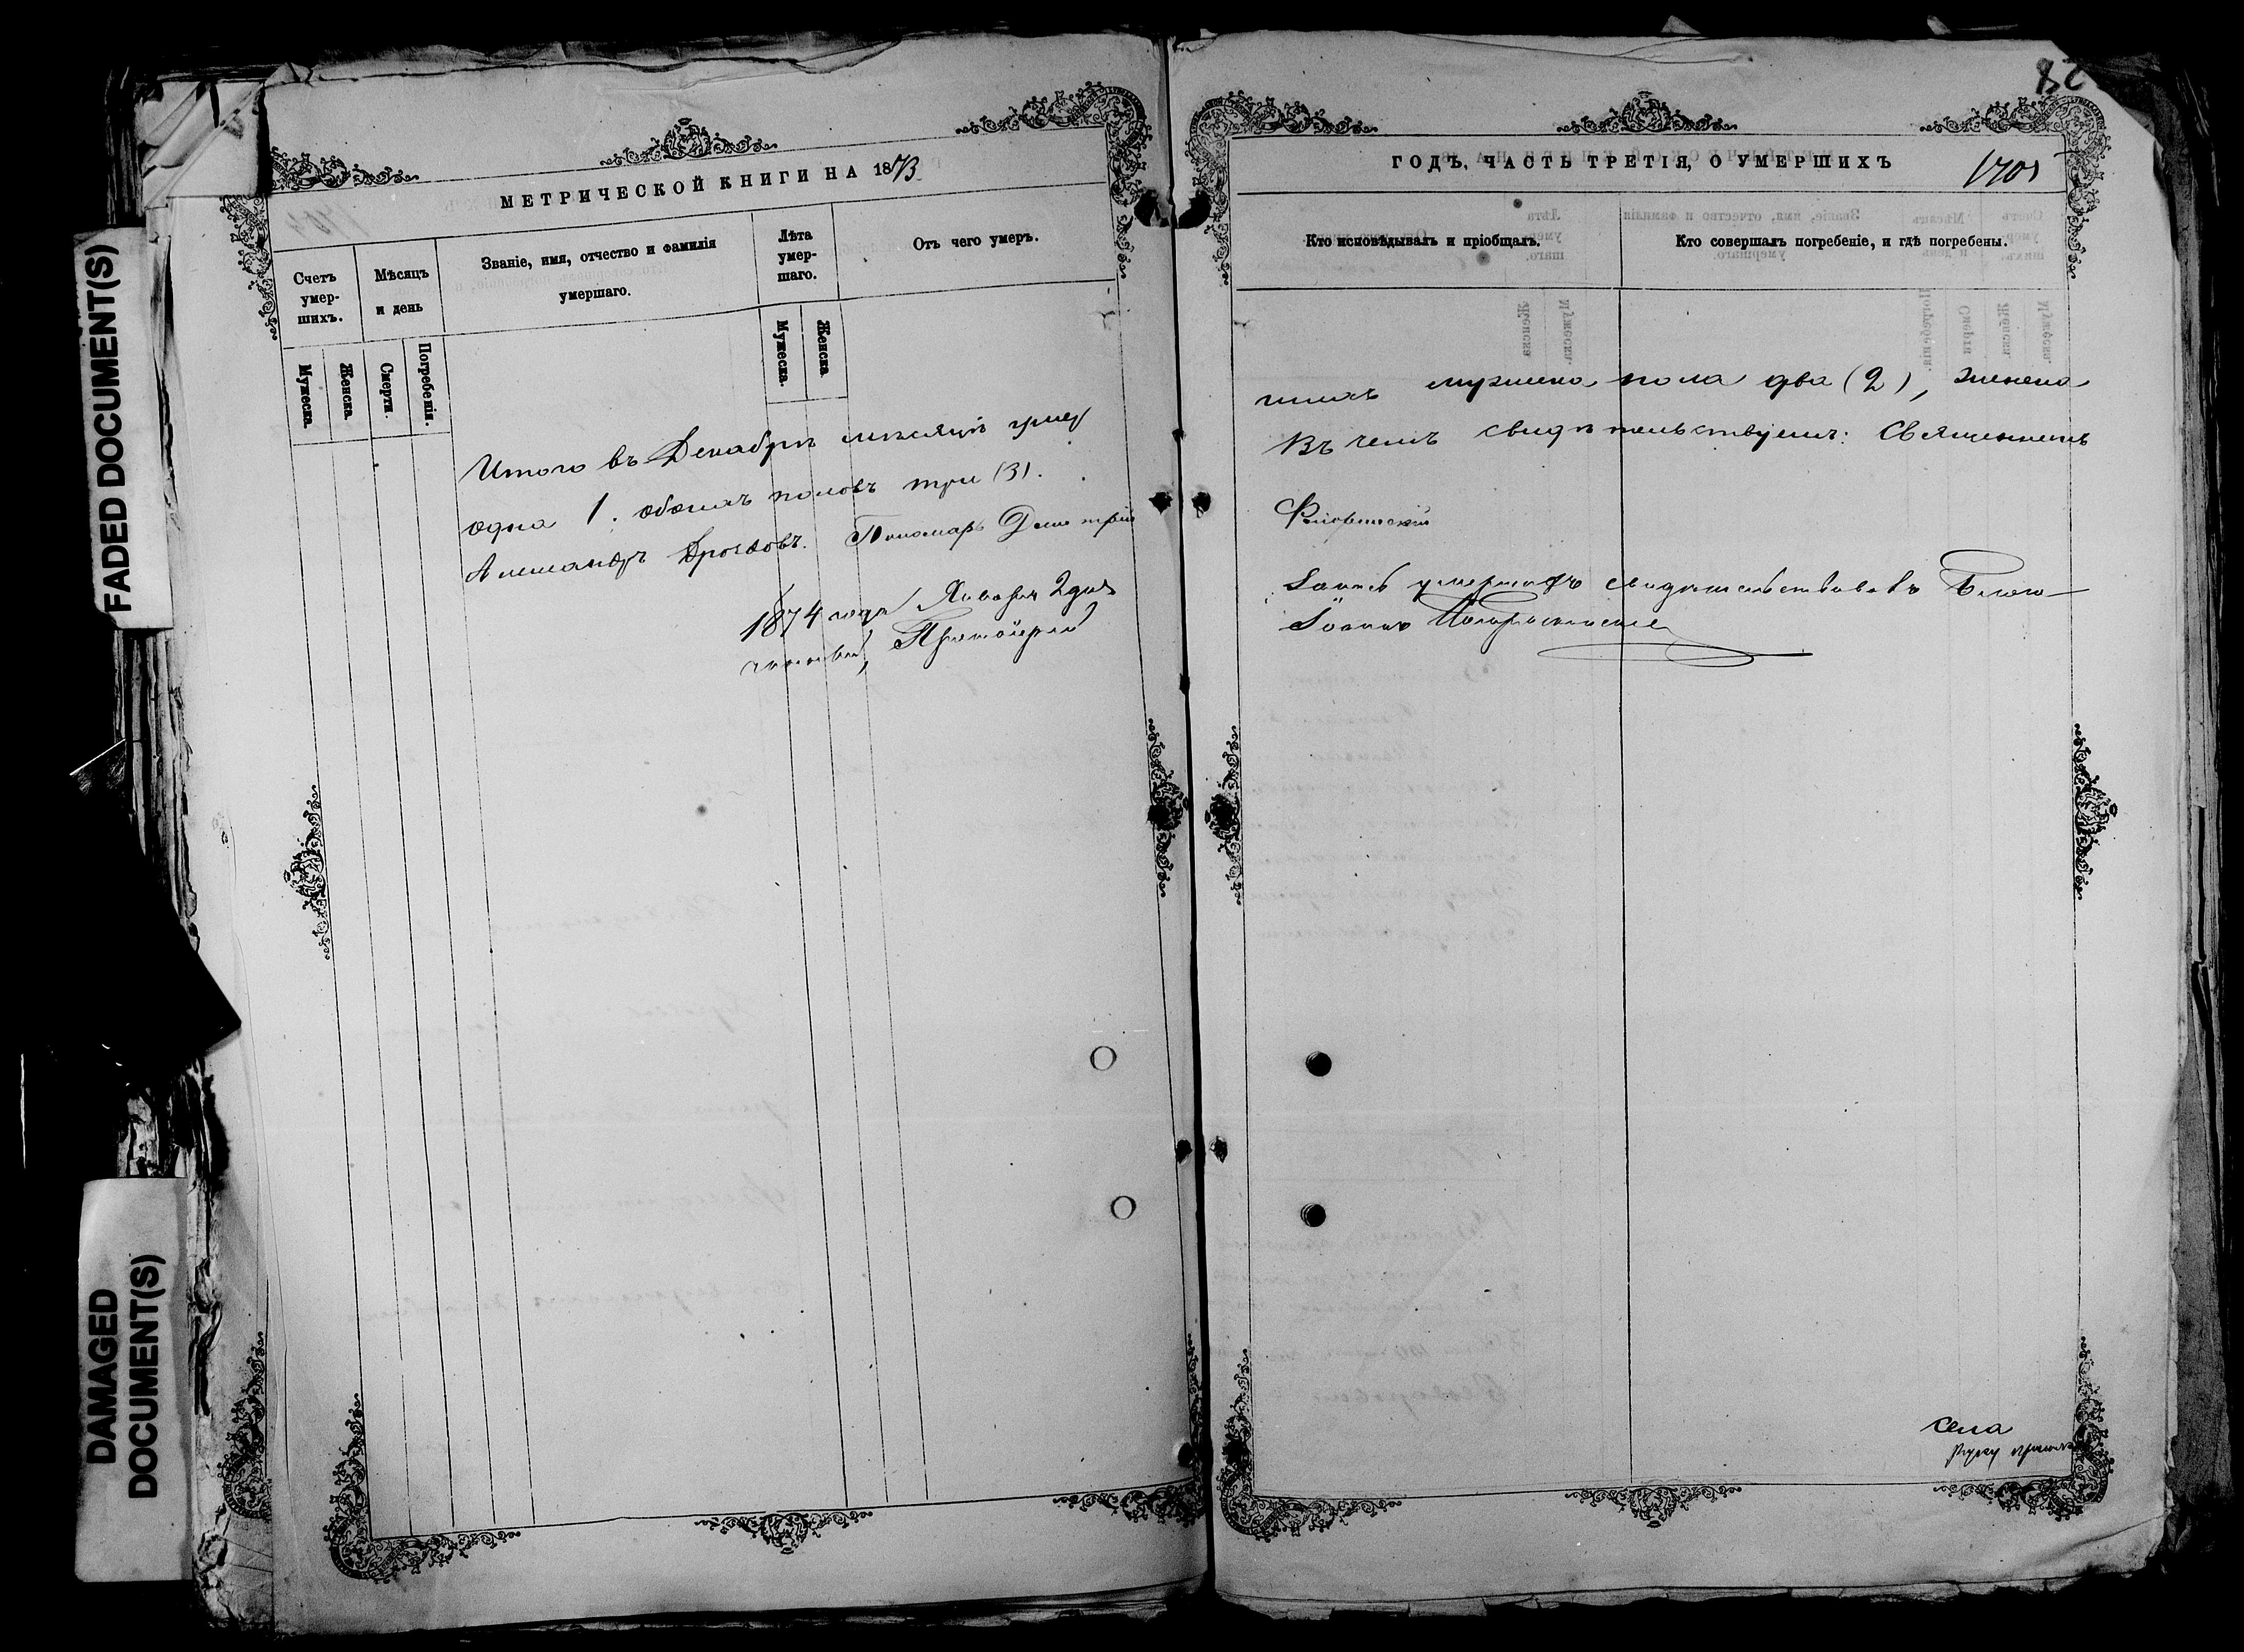 FADED DOCUMENT(S)
DAMAGED
DOCUMENT(S)
МЕТРИЧЕСКОЙ КНИГИ НА 1873
Счетъ
умер-
шихъ.
Мѣсяцъ
и день
Званіе, имя, отчество и фамилія
умершаго.
Лѣта
умер-
шаго.
Отъ чего умеръ.
Мужеска.
Женска.
Смерти.
Погребенія.
Мужеска.
Женска.
Итого въ Декабрѣ мѣсяцѣ умер
одна 1. обоихъ половъ три (3).
Александръ Дроздовъ. Пономарь Димитрій
1874 года Января 2 дня
Протоіерей
82
ГОДЪ, ЧАСТЬ ТРЕТІЯ, О УМЕРШИХЪ
1705
Кто исповѣдывалъ и пріобщалъ.
Кто совершалъ погребеніе, и гдѣ погребены.
шихъ мужеска пола два (2), женска
Въ чемъ свидѣтельствуемъ: Священникъ
умершихъ свидѣтельствовалъ Благо-
Іоаннъ
села